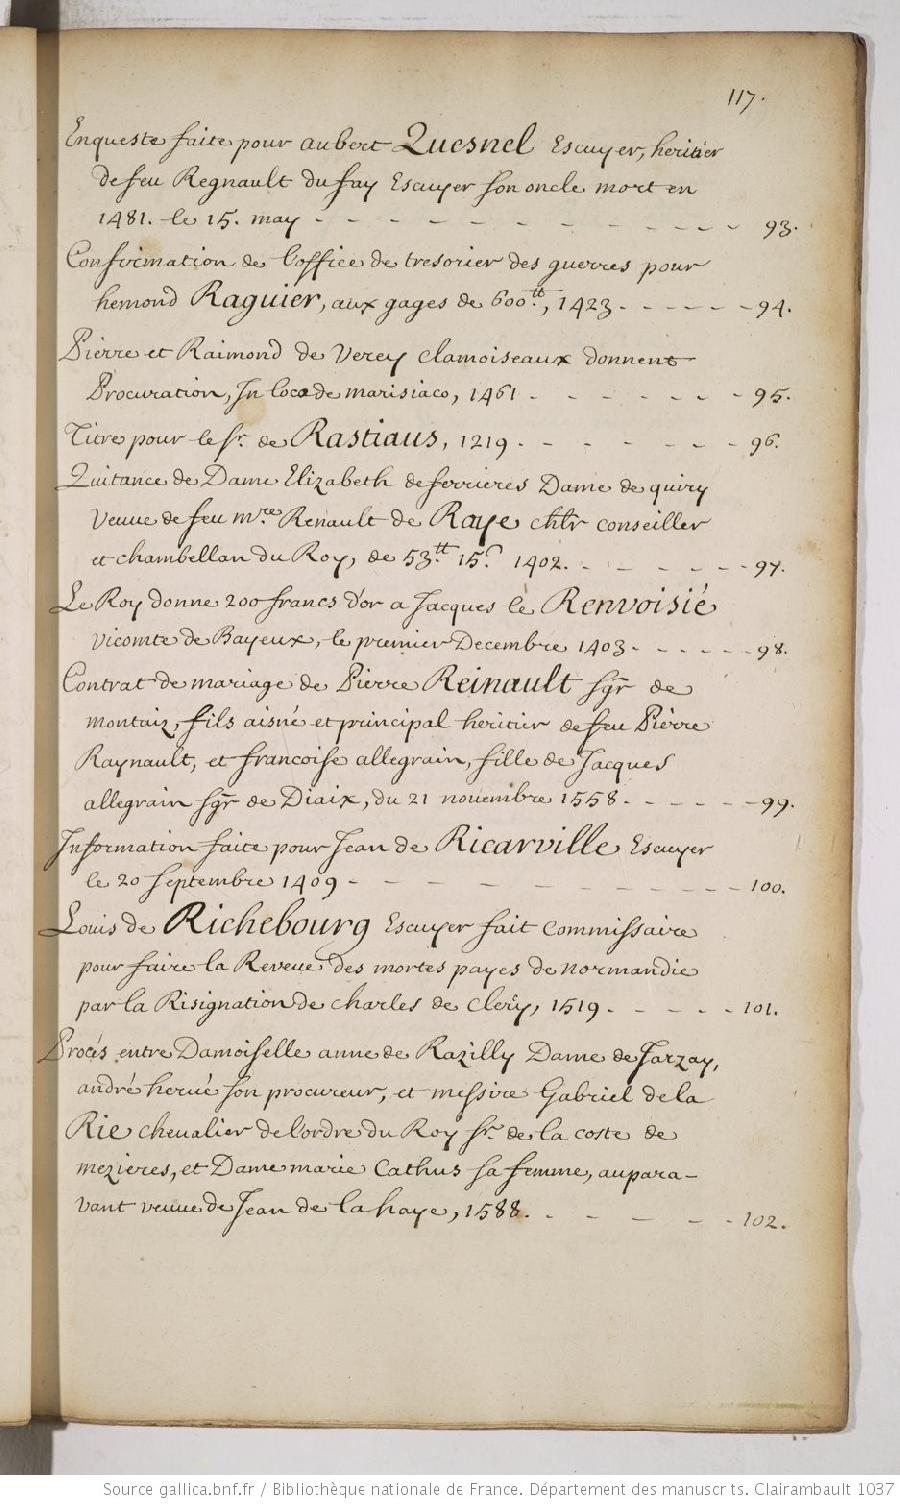 117.
Enqueste faite pour aubert Quesnel Escuyer, heritier
de feu Regnault du fay Escuyer son oncle mort en
1481. le 15. may - - - - - - - - - - - 93.
Confirmation de l'office de tresorier des guerres pour
hemond Raguier, aux gages de 600.tt, 1423 - - - - - - 94.
Pierre et Raimond de Verey clamoiseaux donnent
Procuration, In loco de marisiaco, 1461 - - - - - - 95.
Titre pour le sr. de Rastiaus, 1219 - - - - - - 96.
Quitance de Dame Elizabeth de ferrieres Dame de quiry
veuue de feu mre Renault de Raye chlr conseiller
et chambellan du Roy, de 53.tt 15.s 1402. - - - - - - 97.
Le Roy donne 200 francs d'or a Jacques le Renvoisié
vicomte de Bayeux, le premier Decembre 1403 - - - - - - 98.
Contrat de mariage de Pierre Reinault sgr de
montaiz, fils aisné et principal heritier de feu Pierre
Raynault, et francoise allegrain, fille de Jacques
allegrain sgr de Diaix, du 21 novembre 1558 - - - - - - 99.
Information faite pour Jean de Ricarville Escuyer
le 20 septembre 1409 - - - - - - - - - - - 100.
Louis de Richebourg Escuyer fait commissaire
pour faire la Reveue des mortes payes de normandie
par la Risignation de charles de Clery, 1519 - - - - - 101.
Procés entre Damoiselle anne de Razilly Dame de Jarzay,
andré herué son procureur, et messire Gabriel de la
Rie chevalier de l'ordre du Roy sr. de la coste de
mezieres, et Dame marie Cathus sa femme, aupara-
vant veuue de Jean de la haye, 1588. - - - - - - 102.
Source gallica.bnf.fr / Bibliothèque nationale de France. Département des manuscrits. Clairambault 1037